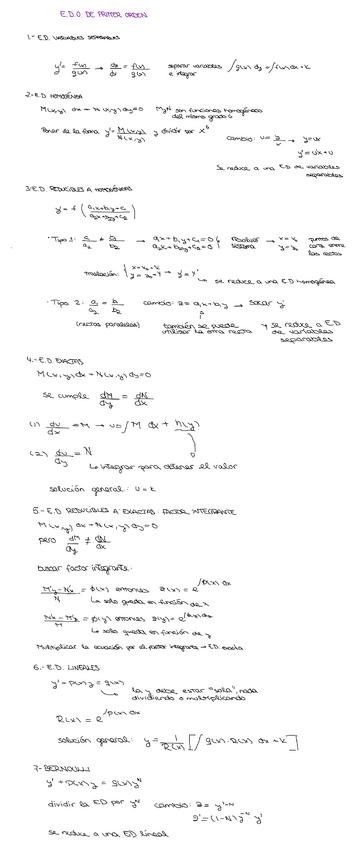 E.D.O. DE PRIMER ORDEN
1.- E.D. VARIABLES SEPARABLES
y' = f(x)/g(y) → dy/dx = f(x)/g(y) separar variables e integrar ∫g(y) dy = ∫f(x) dx + k
2.- E.D. HOMOGÉNEA
M(x,y) dx + N(x,y) dy = 0 M y N son funciones homogéneas del mismo grado
Poner de la forma y' = M(x,y)/N(x,y) y dividir por x
cambio: u = y/x → y = ux
y' = u'x + u
Se reduce a una ED de variables separables
3.- E.D. REDUCIBLES A HOMOGÉNEAS
y' = f (a₁x+b₁y+c₁ / a₂x+b₂y+c₂)
· Tipo 1: a₁/a₂ ≠ b₁/b₂ → a₁x+b₁y+c₁=0 a₂x+b₂y+c₂=0 Resolver sistema → x=x₀ y=y₀ puntos de corte entre las rectas
traslación: x = x₀+X y = y₀+Y → y' = Y'
se reduce a una ED homogénea
· Tipo 2: a₁/a₂ = b₁/b₂ cambio: z = a₁x+b₁y → sacar y'
(rectas paralelas) también se puede utilizar la otra recta y se reduce a ED de variables separables
4.- E.D. EXACTAS
M(x,y) dx + N(x,y) dy = 0
se cumple dM/dy = dN/dx
(1) du/dx = M → u = ∫M dx + h(y)
(2) du/dy = N
integrar para obtener el valor
solución general: u = k
5.- E.D. REDUCIBLES A EXACTAS: FACTOR INTEGRANTE
M(x,y) dx + N(x,y) dy = 0
pero dM/dy ≠ dN/dx
buscar factor integrante:
M'y - N'x / N = p(x) entonces e^∫p(x) dx
solo queda en función de x
N'x - M'y / M = p(y) entonces
solo queda en función de y
Multiplicar la ecuación por el factor integrante → ED exacta
6.- E.D. LINEALES
y' + p(x) y = g(x)
la y debe estar "sola", nada dividiendo o multiplicando
R(x) = e^∫p(x) dx
solución general: y = 1/R(x) [∫g(x)·R(x) dx + k]
7.- BERNOULLI
y' + p(x) y = g(x) y^N
dividir la ED por y^N cambio: z = y^1-N
z' = (1-N) y^-N y'
se reduce a una ED lineal